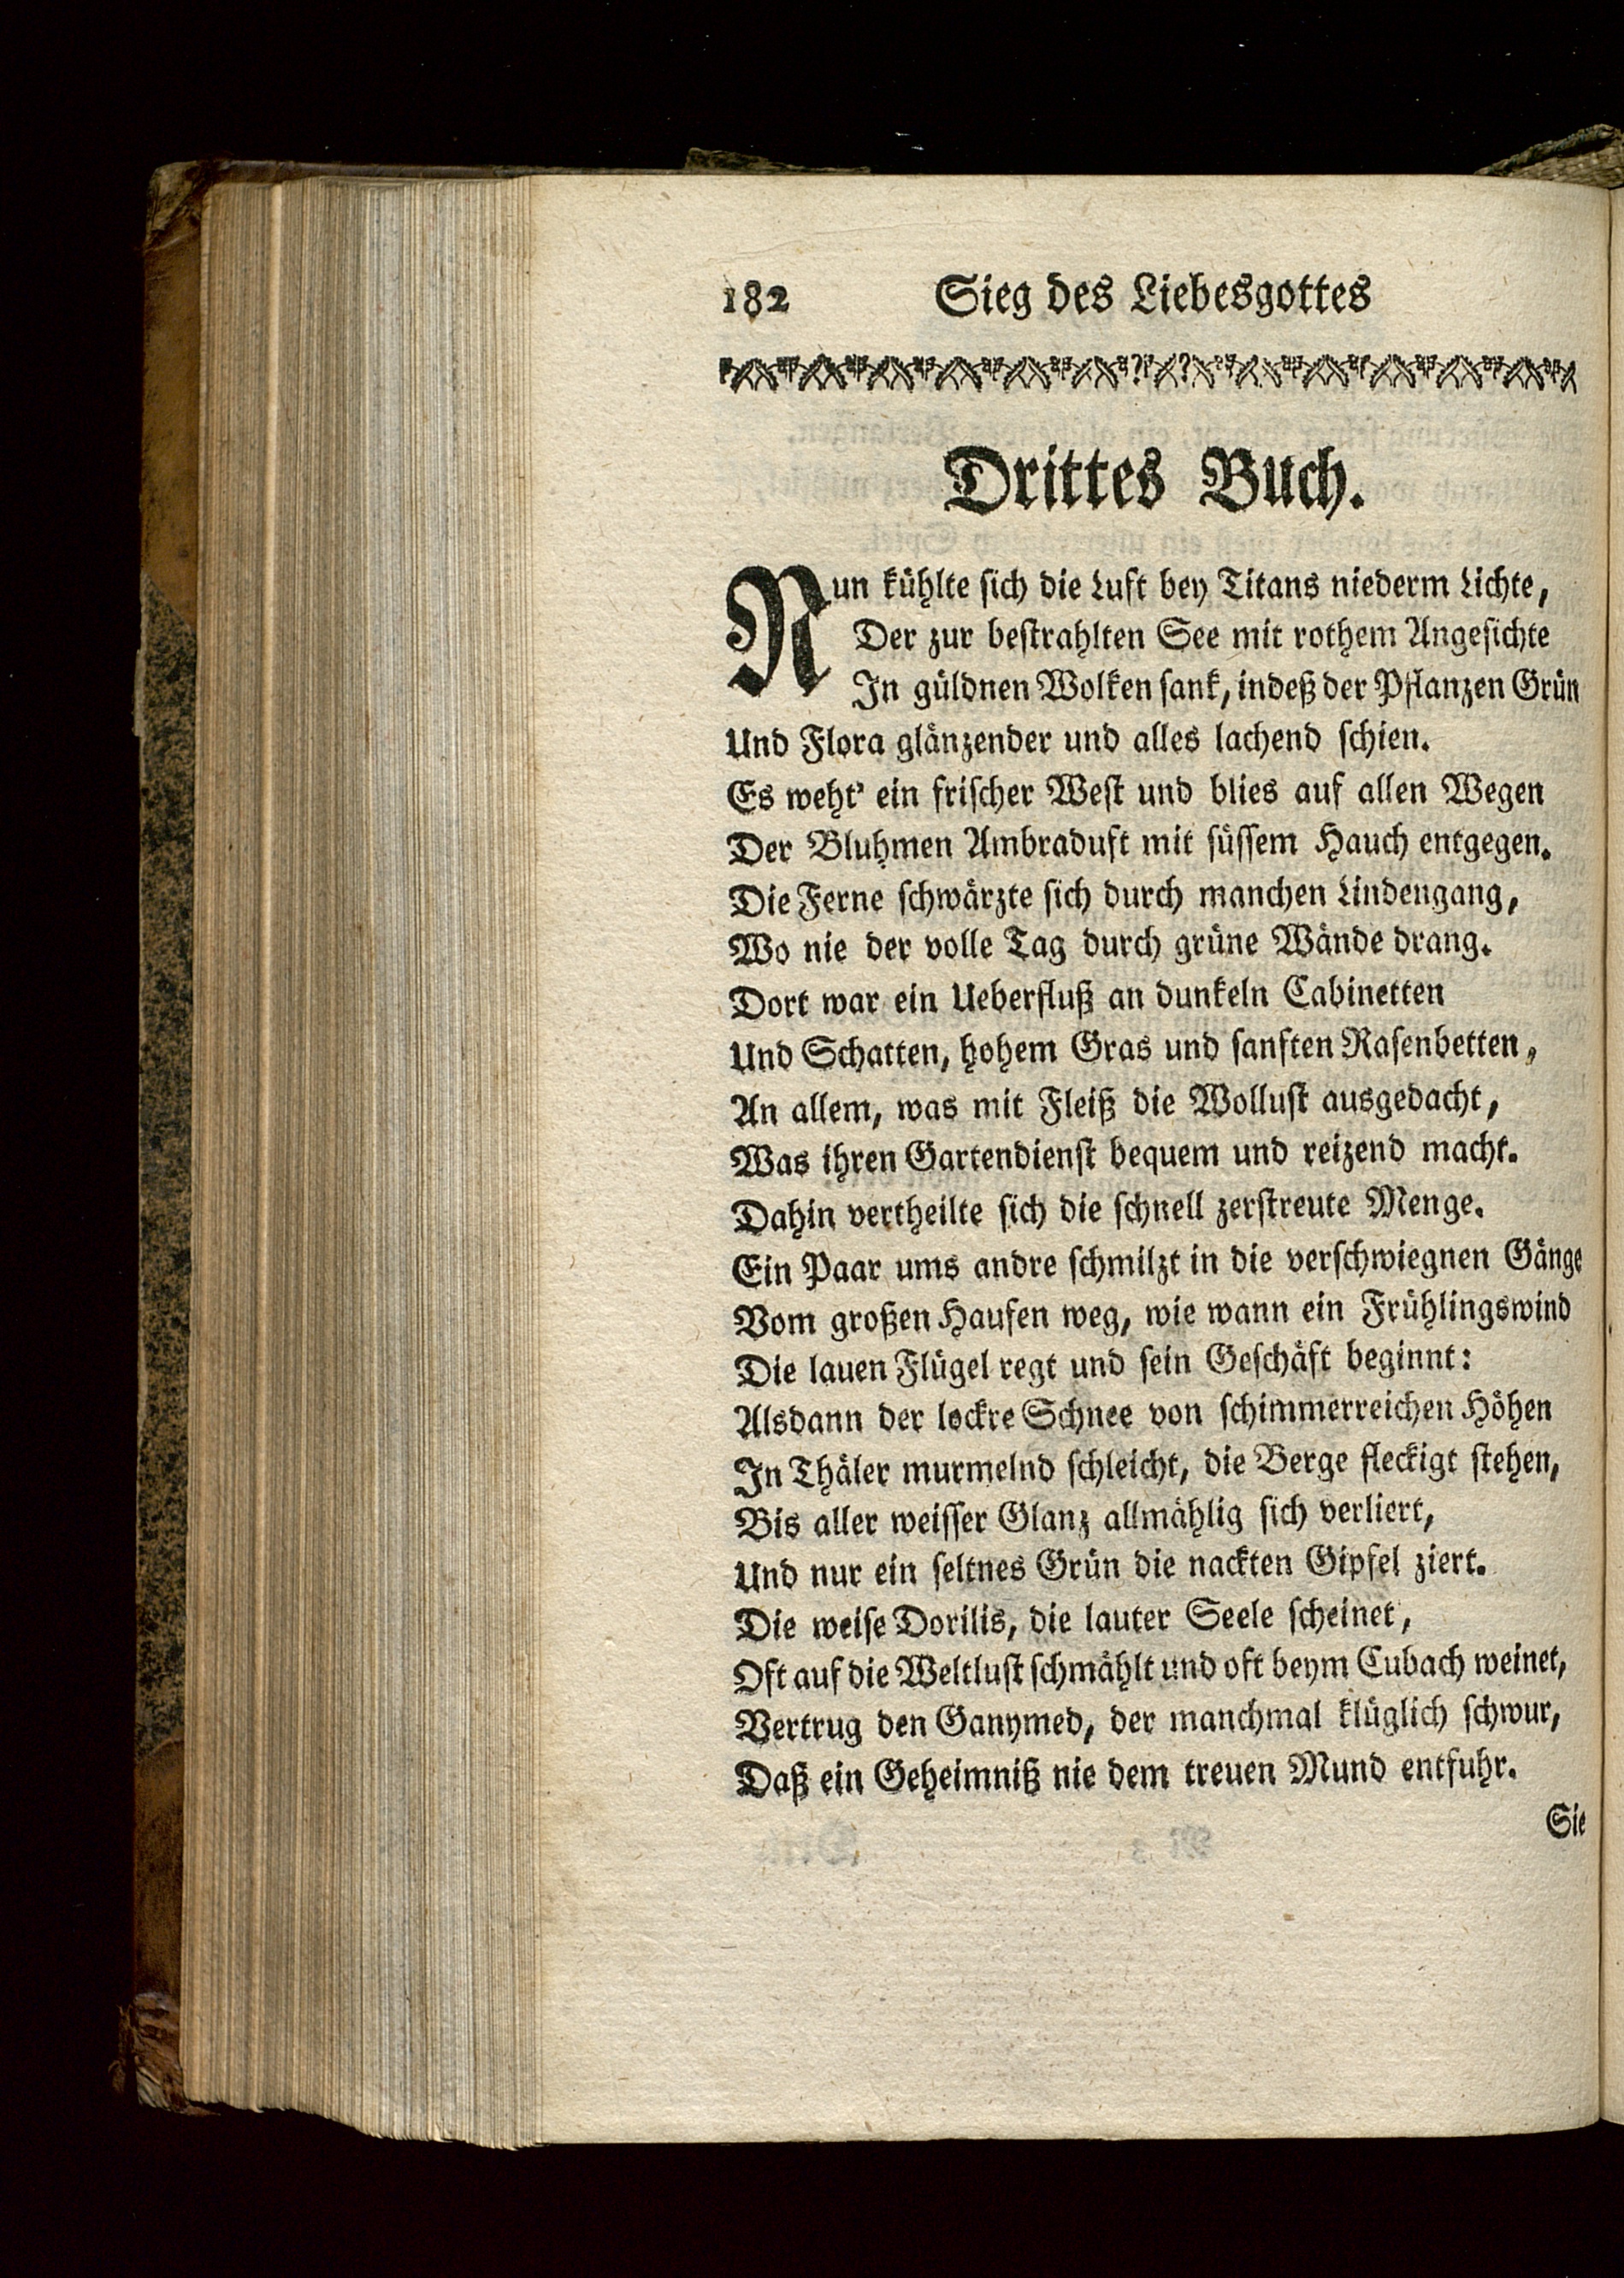 182 Sieg des Liebesgottes
Drittes Buch.
Nun kühlte sich die Luft bey Titans niederm Lichte,
Der zur bestrahlten See mit rothem Angesichte
In güldnen Wolken sank, indeß der Pflanzen Grün
Und Flora glänzender und alles lachend schien.
Es weht' ein frischer West und blies auf allen Wegen
Der Bluhmen Ambraduft mit süssem Hauch entgegen.
Die Ferne schwärzte sich durch manchen Lindengang,
Wo nie der volle Tag durch grüne Wände drang.
Dort war ein Ueberfluß an dunkeln Cabinetten
Und Schatten, hohem Gras und sanften Rasenbetten,
An allem, was mit Fleiß die Wollust ausgedacht,
Was ihren Gartendienst bequem und reizend macht.
Dahin vertheilte sich die schnell zerstreute Menge.
Ein Paar ums andre schmilzt in die verschwiegnen Gänge
Vom großen Haufen weg, wie wann ein Frühlingswind
Die lauen Flügel regt und sein Geschäft beginnt:
Alsdann der lockre Schnee von schimmerreichen Höhen
In Thäler murmelnd schleicht, die Berge fleckigt stehen,
Bis aller weisser Glanz allmählig sich verliert,
Und nur ein seltnes Grün die nackten Gipfel ziert.
Die weise Dorilis, die lauter Seele scheinet,
Oft auf die Weltlust schmählt und oft beym Cubach weinet,
Vertrug den Ganymed, der manchmal klüglich schwur,
Daß ein Geheimniß nie dem treuen Mund entfuhr.
Sie